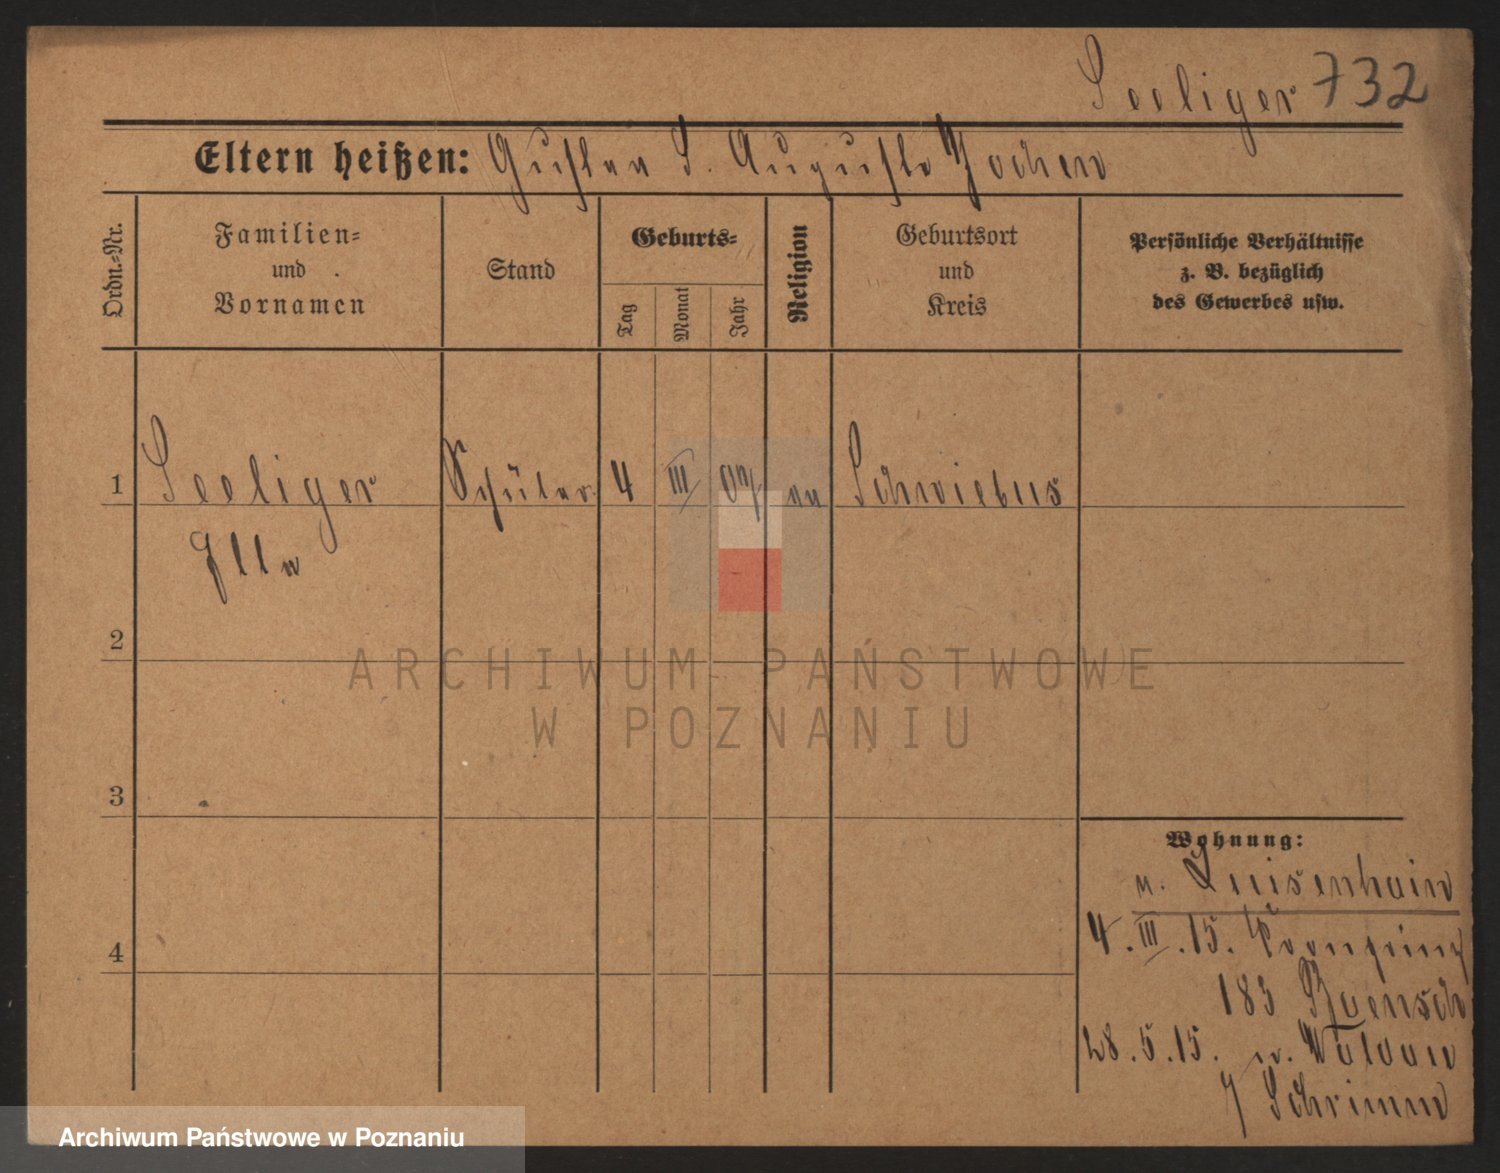 Seeliger 732
Eltern heißen: Gustav S. Auguste Jochen
Ordn.-Nr.
Familien-
und
Vornamen
Stand
Geburts-
Tag
Monat
Jahr
Religion
Geburtsort
und
Kreis
Persönliche Verhältnisse
z. B. bezüglich
des Gewerbes usw.
1 Seeliger Schüler 4 III 07 ev Schwiebus
2
3
4
Wohnung:
n. Luisenhain
4.III.15. Kronprinz
183 Baensch
28.5.15.
Schrimm
ARCHIWUM PAŃSTWOWE
W POZNANIU
Archiwum Państwowe w Poznaniu